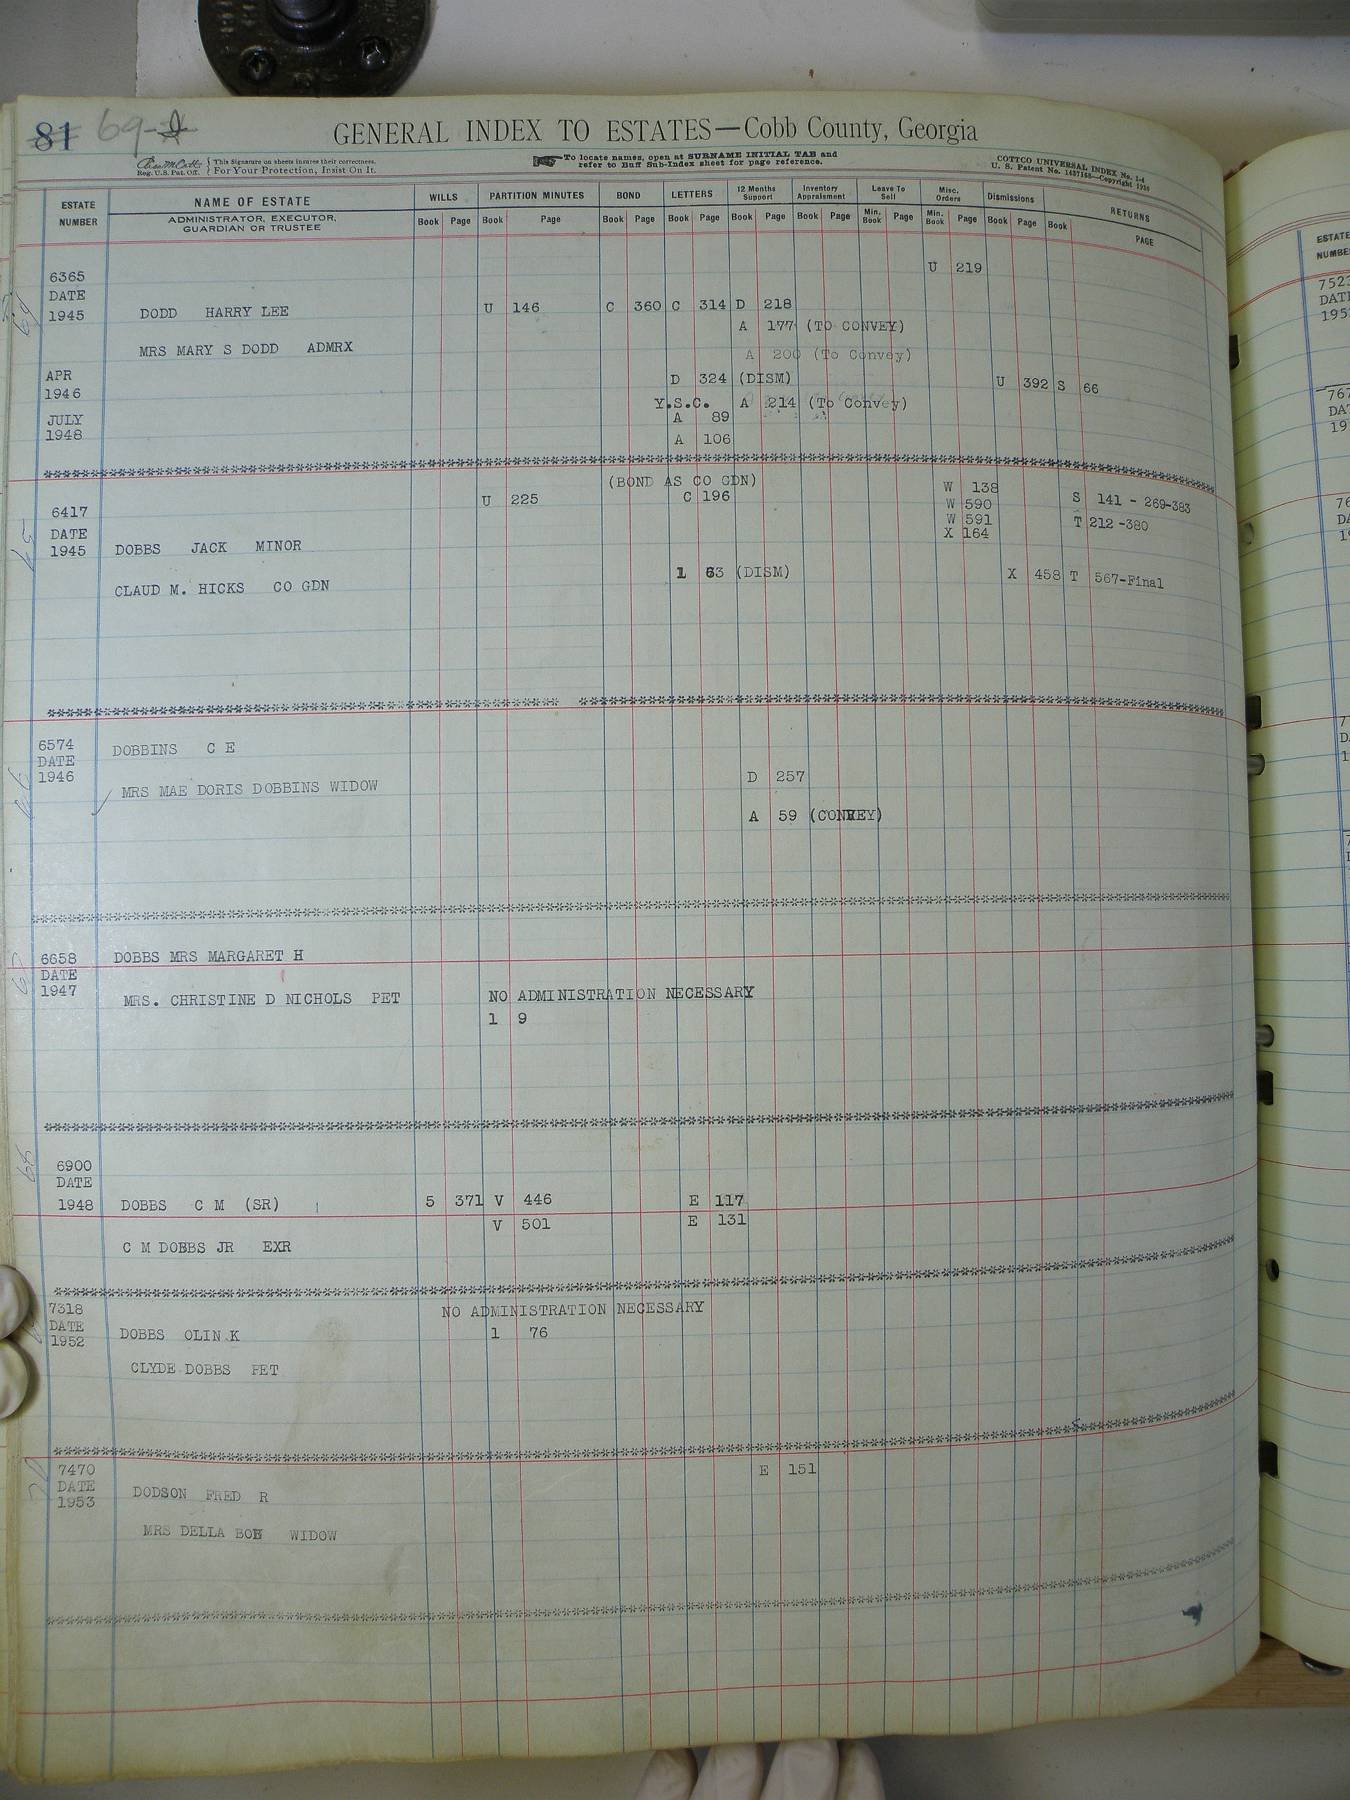 81 69-
GENERAL INDEX TO ESTATES—Cobb County, Georgia
Reg. U.S. Pat. Off. { This Signature on sheets insures their correctness.
For Your Protection, Insist On It.
To locate names, open at SURNAME INITIAL TAB and
refer to Buff Sub-Index sheet for page reference.
COTTCO UNIVERSAL INDEX No. 1-4
U. S. Patent No. 1487168—Copyright 1930
ESTATE NUMBER
NAME OF ESTATE
ADMINISTRATOR, EXECUTOR, GUARDIAN OR TRUSTEE
WILLS PARTITION MINUTES BOND LETTERS 12 Months Support Inventory Appraisment Leave To Sell Misc. Orders Dismissions RETURNS
Book Page Book Page Book Page Book Page Book Page Book Page Min. Book Page Min. Book Page Book Page Book PAGE
6365 U 219
DATE
1945 DODD HARRY LEE U 146 C 360 C 314 D 218
A 177 (TO CONVEY)
MRS MARY S DODD ADMRX
A 200 (To Convey)
APR D 324 (DISM) U 392 S 66
1946
Y.S.C. A 214 (To Convey)
JULY A 89
1948 A 106
(BOND AS CO GDN) W 138
U 225 C 196 W 590 S 141 - 269-383
6417 W 591 T 212 -380
DATE X 164
1945 DOBBS JACK MINOR
1 63 (DISM) X 458 T 567-Final
CLAUD M. HICKS CO GDN
6574 DOBBINS C E
DATE
1946 D 257
MRS MAE DORIS DOBBINS WIDOW
A 59 (CONVEY)
6658 DOBBS MRS MARGARET H
DATE
1947 MRS. CHRISTINE D NICHOLS PET NO ADMINISTRATION NECESSARY
1 9
6900
DATE
1948 DOBBS C M (SR) 5 371 V 446 E 117
V 501 E 131
C M DOBBS JR EXR
7318 NO ADMINISTRATION NECESSARY
DATE
1952 DOBBS OLIN K 1 76
CLYDE DOBBS PET
7470 E 151
DATE
1953 DODSON FRED R
MRS DELLA WIDOW